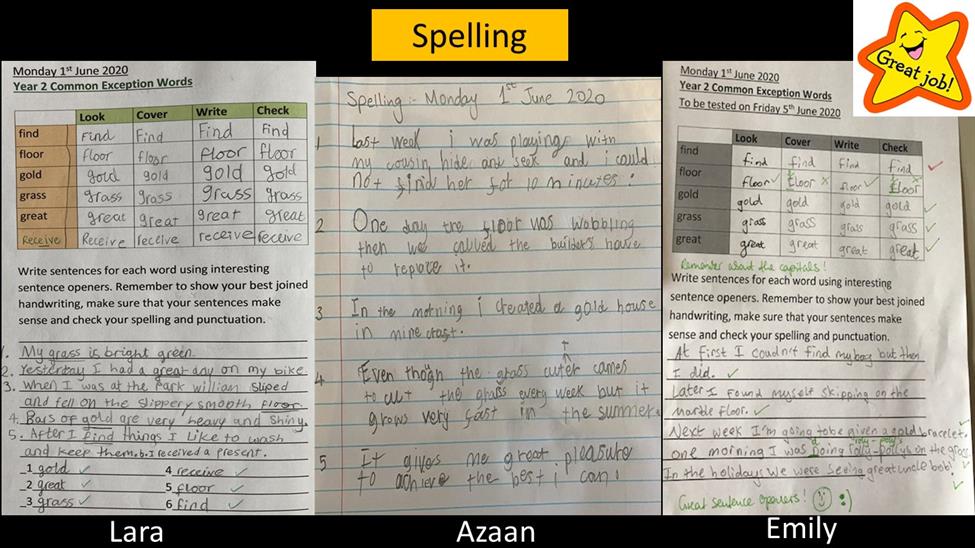 Spelling
Great job!
Monday 1st June 2020
Year 2 Common Exception Words
Look Cover Write Check
find Find Find Find Find
floor floor floor floor floor
gold gold gold gold gold
grass grass grass grass grass
great great great great great
Receive Receive receive receive receive
Write sentences for each word using interesting
sentence openers. Remember to show your best joined
handwriting, make sure that your sentences make
sense and check your spelling and punctuation.
1. My grass is bright green.
2. Yesterday I had a great day on my bike
3. When I was at the Park willian sliped
and fell on the slippery smooth floor.
4. Bars of gold are very heavy and shiny.
5. After I find things I like to wash
and keep them. 6. I received a present.
1 gold ✓ 4 receive ✓
2 great ✓ 5 floor ✓
3 grass ✓ 6 find ✓
Lara
Spelling :- Monday 1st June 2020
1 Last week i was playing with
my cousin, hide and seek and i could
not find her for 10 minutes.
2 One day the floor was wobbling
then we called the builders house
to replace it.
3 In the morning i created a gold house
in minecraft.
4 Even though the grass cuter comes
to cut the grass every week but it
grows very fast in the summer.
5 It gives me great pleasure
to achieve the best i can.
Azaan
Monday 1st June 2020
Year 2 Common Exception Words
To be tested on Friday 5th June 2020
Look Cover Write Check
find find find find find
floor floor floor floor floor
gold gold gold gold gold
grass grass grass grass grass
great great great great great
Remember about the capitals!
Write sentences for each word using interesting
sentence openers. Remember to show your best joined
handwriting, make sure that your sentences make
sense and check your spelling and punctuation.
At first I coudn't find my bag but then
I did. ✓
Later I found myself skipping on the
marble floor. ✓
Next week I'm going to be given a gold bracelet.
roly-polys
one morning I was doing rolly-pollys on the grass.
In the holidays We were seeing great uncle bob!
Great sentence openers! :)
Emily